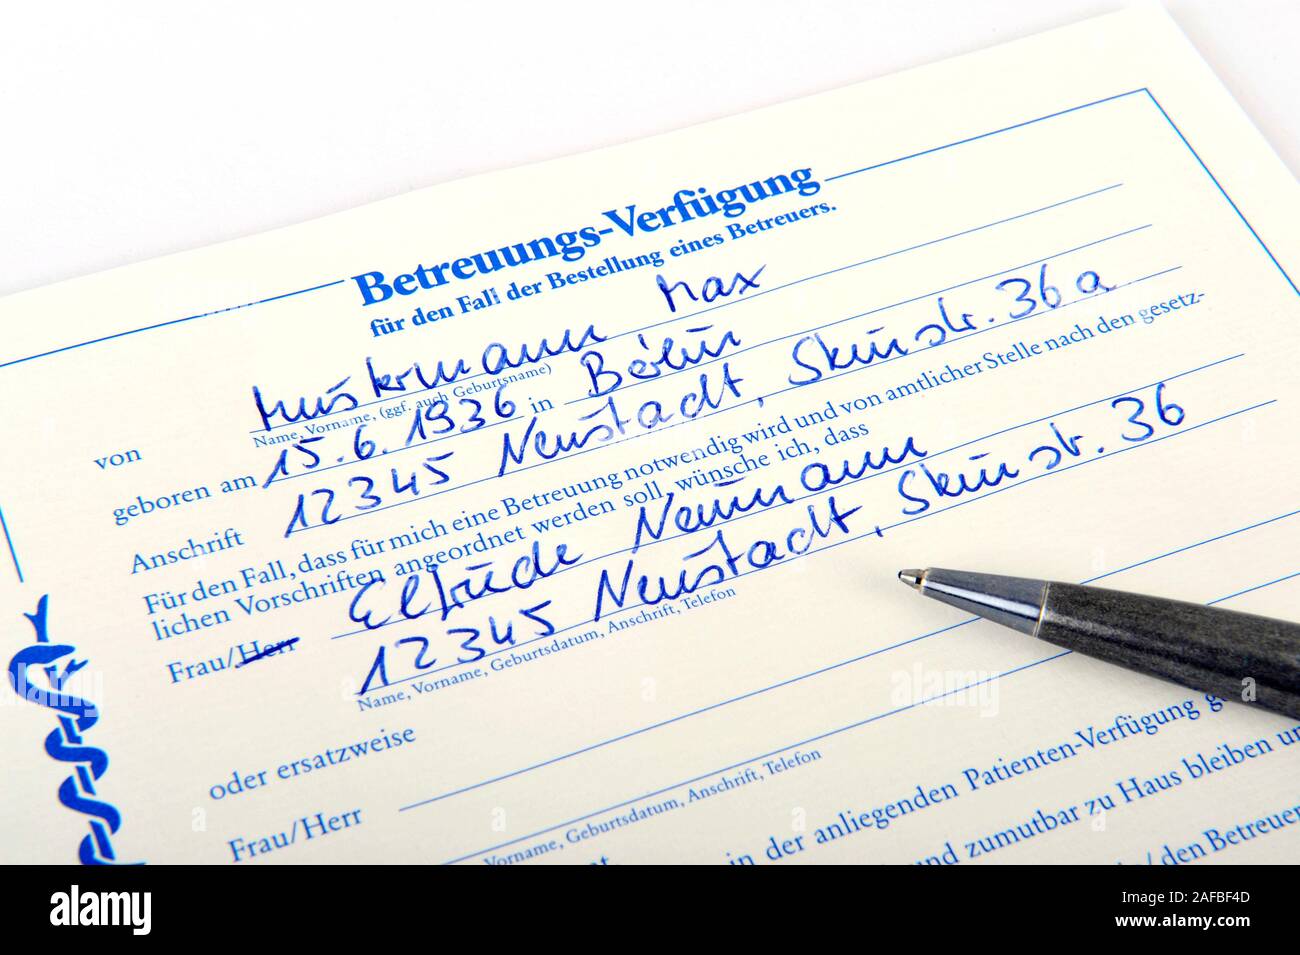 Betreuungs-Verfügung
für den Fall der Bestellung eines Betreuers.
von Mustermann Max
Name, Vorname, (ggf. auch Geburtsname)
geboren am 15.6.1936 in
Anschrift 12345 Neustadt, 36a
Für den Fall, dass für mich eine Betreuung notwendig wird und von amtlicher Stelle nach den gesetz-
lichen Vorschriften angeordnet werden soll, wünsche ich, dass
Frau/Herr Elfriede Neumann
12345 Neustadt, 36
Name, Vorname, Geburtsdatum, Anschrift, Telefon
oder ersatzweise
Frau/Herr
Vorname, Geburtsdatum, Anschrift, Telefon
in der anliegenden Patienten-Verfügung
und zumutbar zu Hause bleiben
/ den Betreuer
alamy
Image ID: 2AFBF4D
www.alamy.com